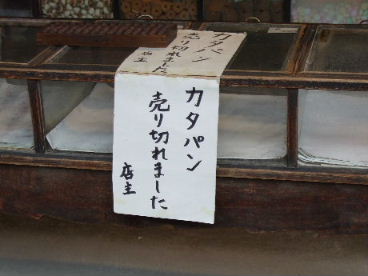 カタパン
売り切れました
店主
カタパン
売り切れました
店主